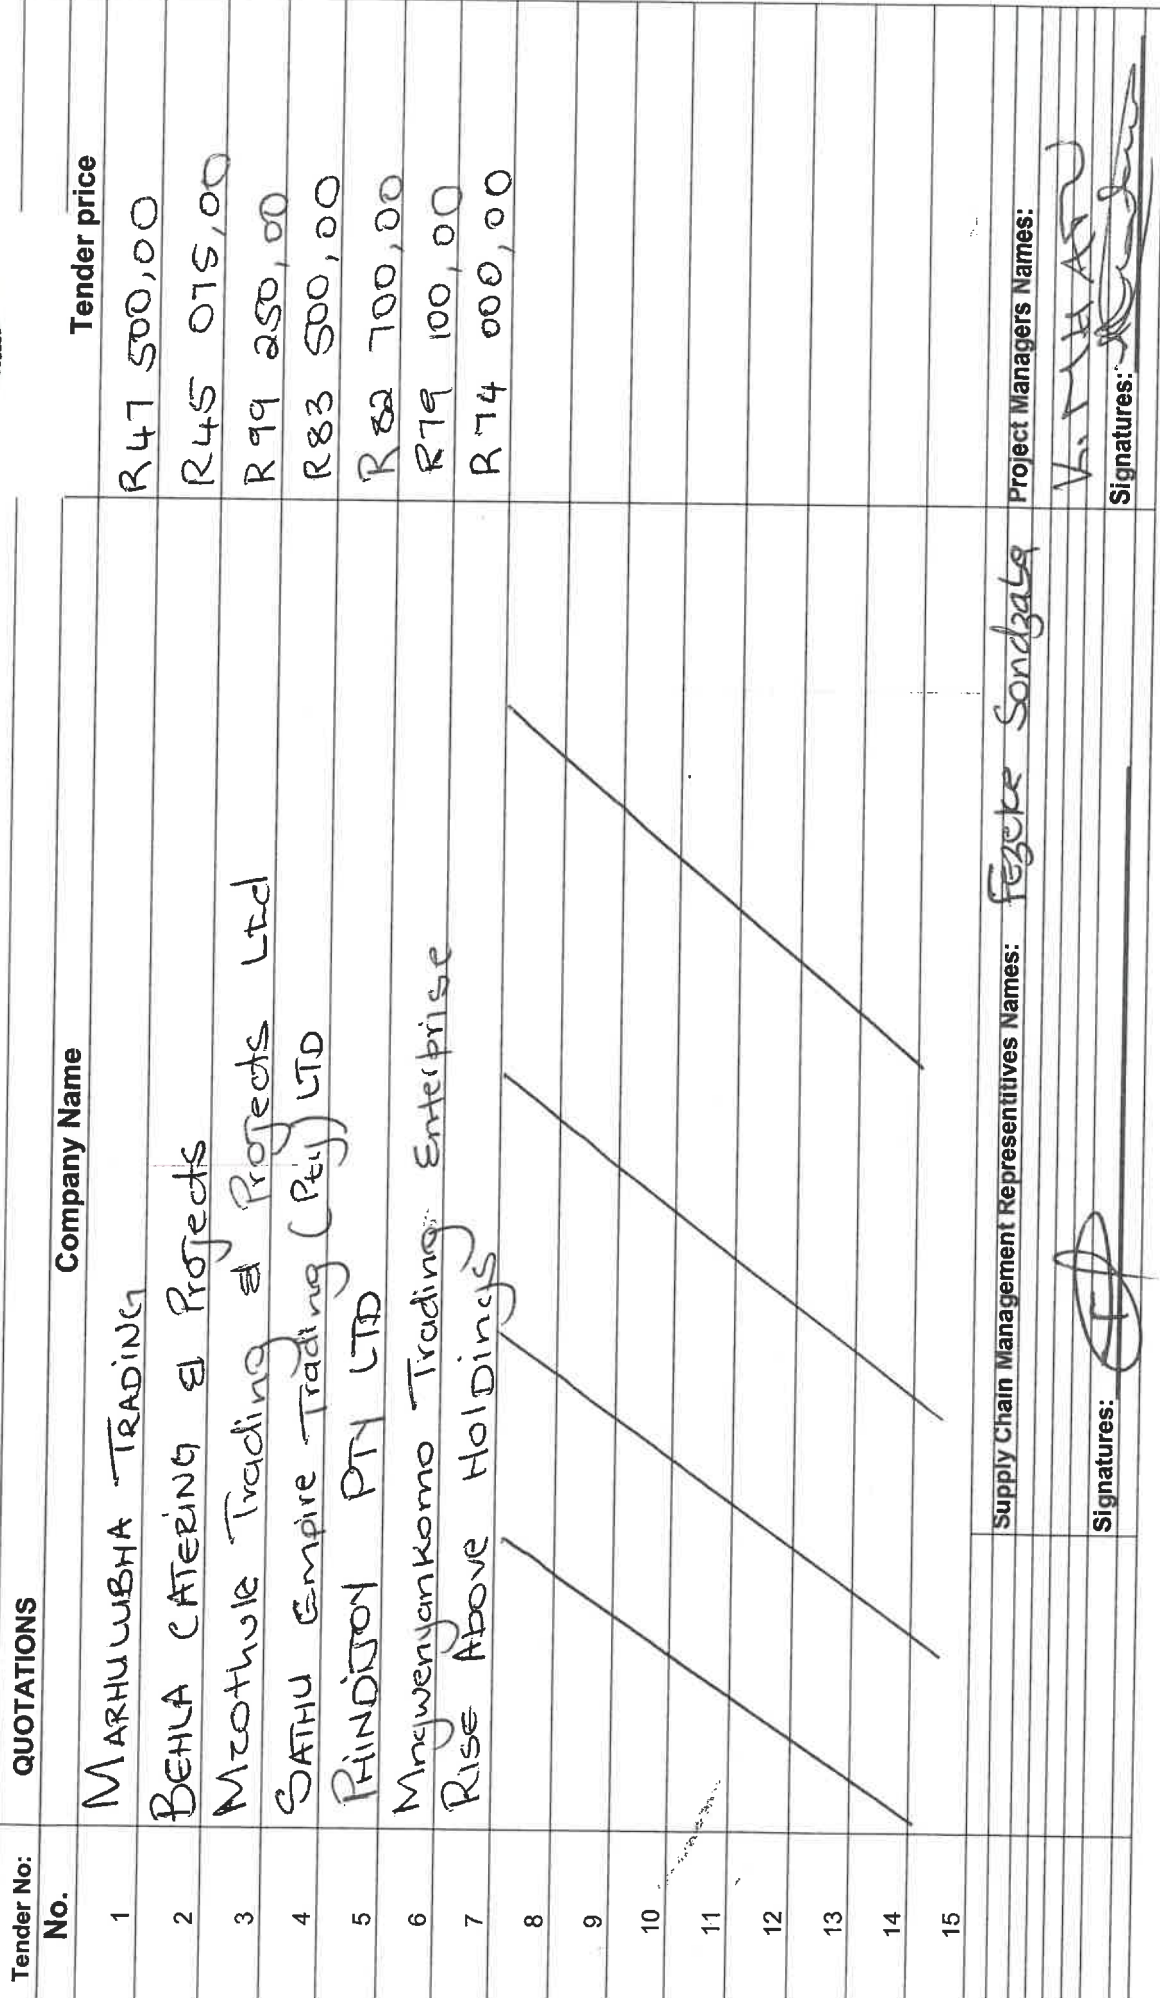 Tender No: QUOTATIONS
No. Company Name Tender price
1 MARHULUBHA TRADING R47 500,00
2 BEHLA CATERING & Projects R45 075,00
3 Mzothule Trading & Projects Ltd R99 250,00
4 SATHU Empire Trading (Pty) LTD R83 500,00
5 PHINDIJOY PTY LTD R82 700,00
6 Mngwenyankomo Trading Enterprise R79 100,00
7 RISE Above HolDings R74 000,00
8
9
10
11
12
13
14
15
Supply Chain Management Representitives Names: Fezeka Sondzaba Project Managers Names:
V.
Signatures: Signatures: